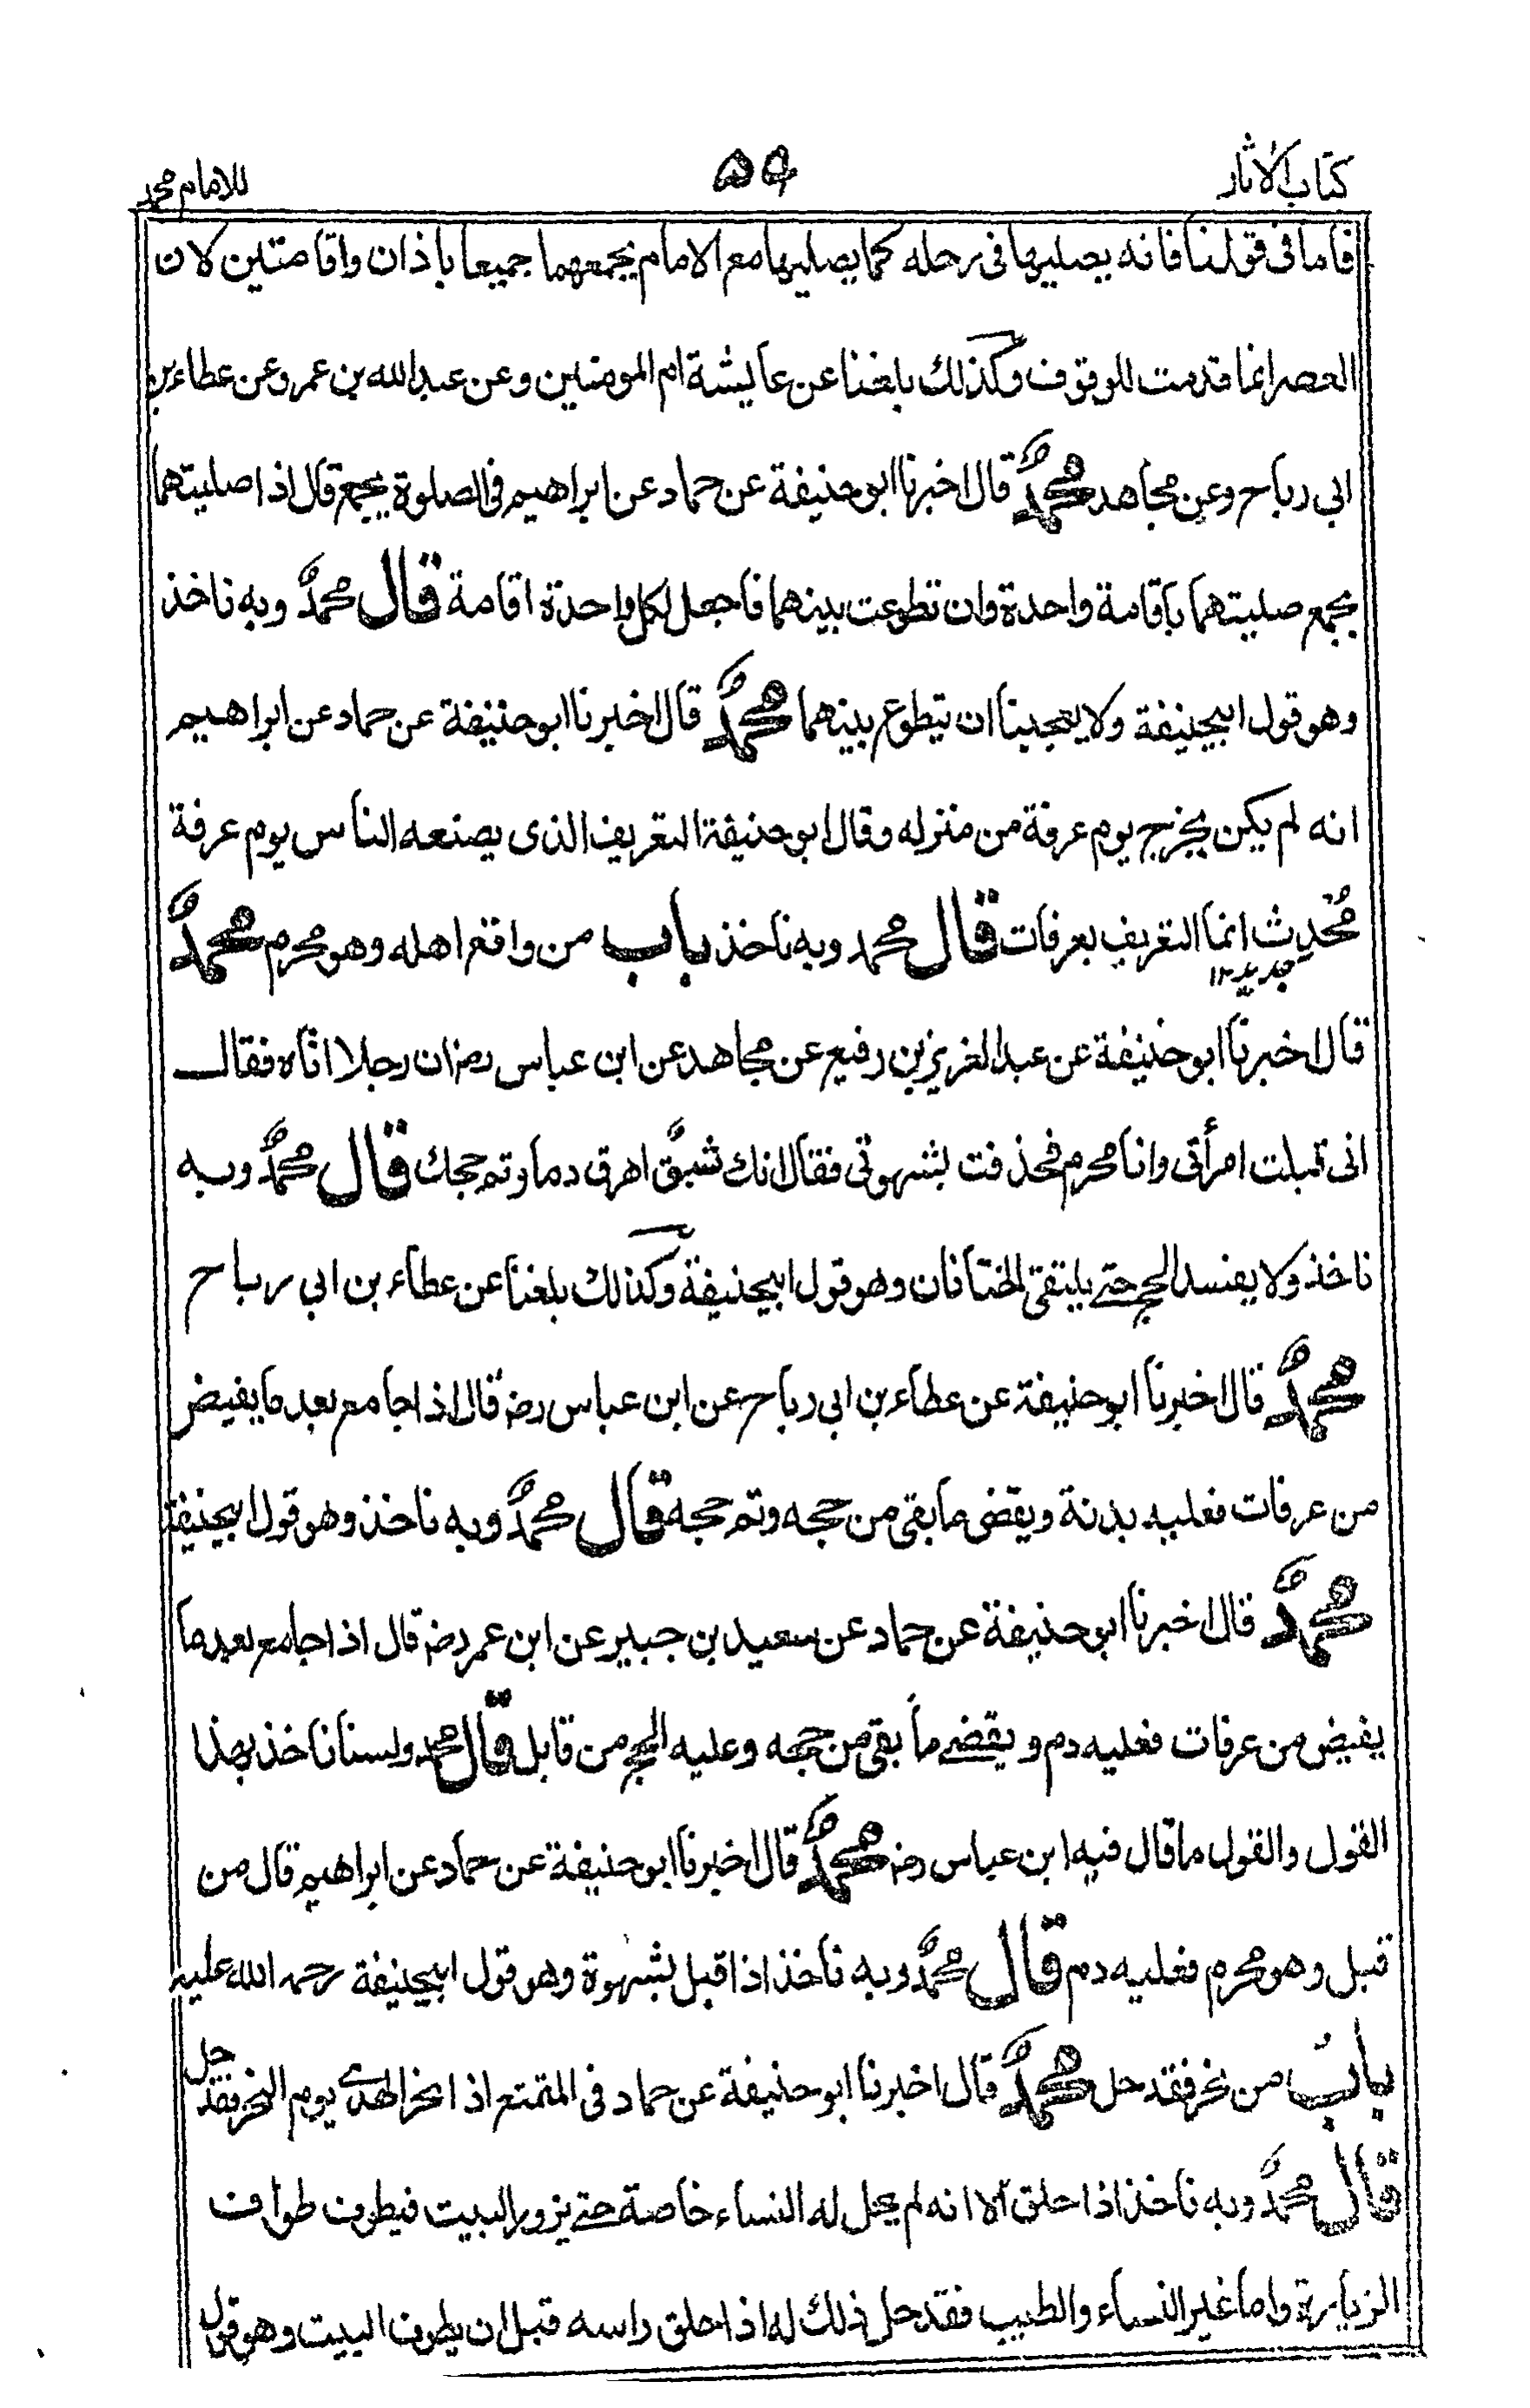 كتاب الاثار ٥٩ للامام محمد
فاما فى قولنا فانه يصليها فى رحله كما يصليها مع الامام يجمعهما جميعا باذان واقامتين لان
العصر انما قدمت للوقوف وكذلك بلغنا عن عايشة ام المومنين وعن عبد الله بن عمر وعن عطاء بن
ابى رباح وعن مجاهد محمدٌ قال اخبرنا ابو حنيفة عن حماد عن ابراهيم فى الصلوة بجمع قال اذا صليتهما
بجمع صليتهما باقامة واحدة وان تطوعت بينهما فاجعل لكل واحدة اقامة قال محمدٌ وبه ناخذ
وهو قول ابيحنيفة ولا يعجبنا ان يتطوع بينهما محمدٌ قال اخبرنا ابو حنيفة عن حماد عن ابراهيم
انه لم يكن يخرج يوم عرفة من منزله وقال ابو حنيفة التعريف الذى يصنعه الناس يوم عرفة
مُحْدِث انما التعريف بعرفات قال محمد وبه ناخذ باب من واقع اهله وهو محرم محمدٌ
جديد ١٢
قال اخبرنا ابو حنيفة عن عبد العزيز بن رفيع عن مجاهد عن ابن عباس رضـ ان رجلا اتاه فقال
انى قبلت امرأتى وانا محرم فحذفت بشهوتى فقال انك شبقٌ اهرق دما وتم حجك قال محمدٌ وبه
ناخذ ولا يفسد الحج حتے يلتقى الختانان وهو قول ابيحنيفة وكذلك بلغنا عن عطاء بن ابى رباح
محمدٌ قال اخبرنا ابو حنيفة عن عطاء بن ابى رباح عن ابن عباس رضـ قال اذا جامع بعد ما يفيض
من عرفات فعليه بدنة ويقضى ما بقى من حجه وتم حجه قال محمدٌ وبه ناخذ وهو قول ابيحنيفة
محمدٌ قال اخبرنا ابو حنيفة عن حماد عن سعيد بن جبير عن ابن عمر رضـ قال اذا جامع بعد ما
يفيض من عرفات فعليه دم ويقضے ما بقى من حجه وعليه الحج من قابل قال محمد ولسنا ناخذ بهذا
القول والقول ما قال فيه ابن عباس رضـ محمدٌ قال اخبرنا ابو حنيفة عن حماد عن ابراهيم قال من
قبل وهو محرم فعليه دم قال محمدٌ وبه ناخذ اذا قبل بشهوة وهو قول ابيحنيفة رحمه الله عليه
بابُ من نحر فقد حل محمدٌ قال اخبرنا ابو حنيفة عن حماد فى المتمتع اذا نحر الهدى يوم النحر فقد حل
قال محمدٌ وبه ناخذ اذا حلق الا انه لم يحل له النساء خاصة حتے يزور البيت فيطوف طواف
الزيارة واما غير النساء والطيب فقد حل ذلك له اذا حلق راسه قبل ان يطوف البيت وهو قول